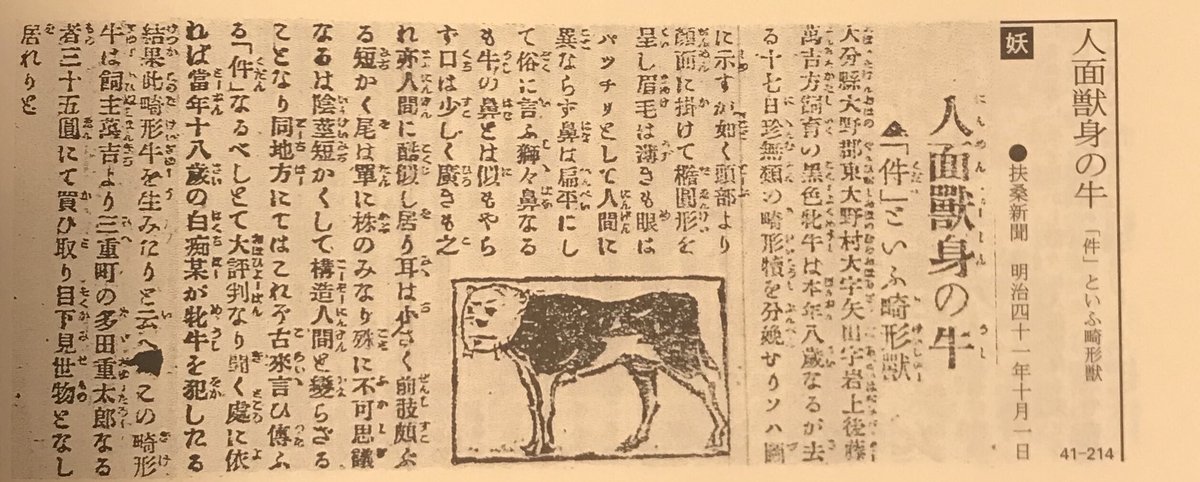 人面獣身の牛 「件」といふ畸形獣
妖
●扶桑新聞 明治四十一年十月一日
41-214
人面獸身の牛
▲「件」といふ畸形獸
大分縣大野郡東大野村大字矢田字岩上後藤
萬吉方飼育の黒色牝牛は本年八歳なるが去
る十七日珍無類の畸形犢を分娩せりソハ圖
に示すが如く頭部より
顔面に掛けて橢圓形を
呈し眉毛は薄きも眼は
パッチリとして人間に
異ならす鼻は扁平にし
て俗に言ふ獅々鼻なる
も牛の鼻とは似もやら
す口は少しく廣きも之
れ亦人間に酷似し居り耳は小さく前肢頗ぶ
る短かく尾は單に株のみなり殊に不可思議
なるは陰莖短かくして構造人間と變らざる
ことなり同地方にてはこれぞ古來言ひ傳ふ
る「件」なるべしとて大評判なり聞く處に依
れば當年十八歳の白痴某が牝牛を犯したる
結果此畸形牛を生みたりと云へ この畸形
牛は飼主萬吉より三重町の多田重太郎なる
者三十五圓にて買ひ取り目下見世物となし
居れりと